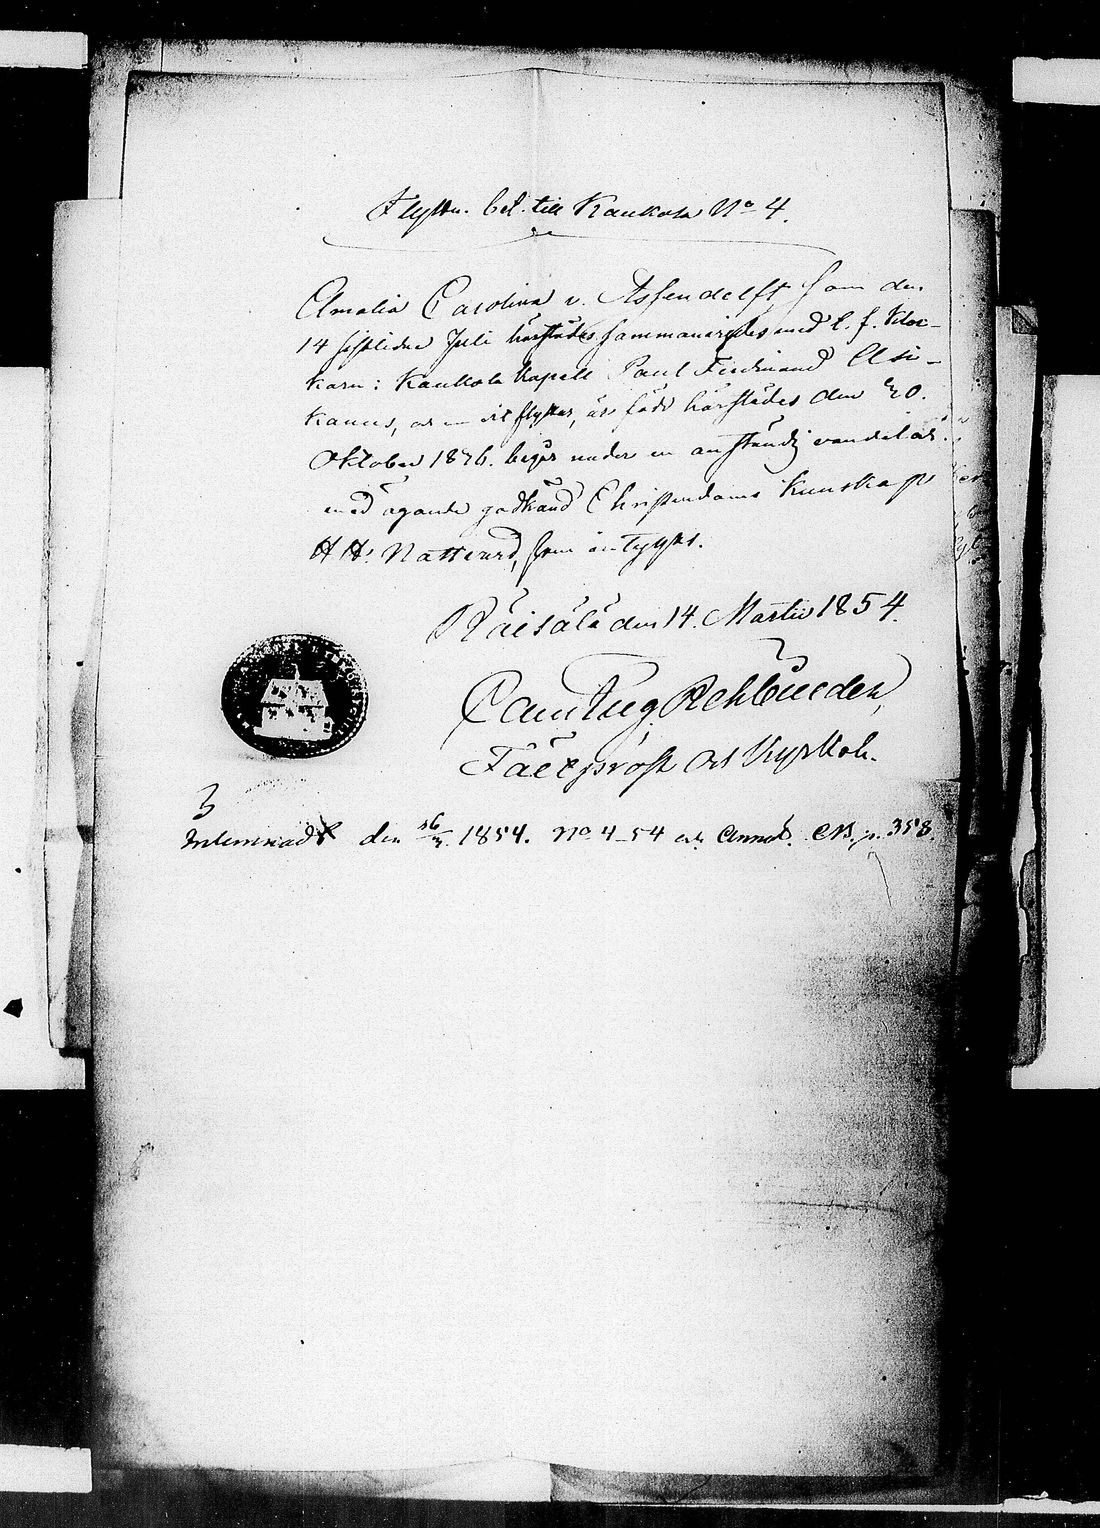 Flyttn. bet. till Kaukola No 4.
Amalia Carolina v. Assendelfft som den
14 sistlidne Juli härstädes sammanvigdes med t. f. Kloc-
karn i Kaukola Kapell Paul Ferdinand Elsi-
kanus, och nu dit flyttar, är född härstädes den 20.
Oktober 1826. begår under en anständig vandel år.
med ägande godkänd Christendoms kunskap
H H. Nattvard, som intygas.
Räisälä den 14. Martii 1854.
Carl Aug. Rehbinder,
Fältprost och Kyrkoh.
3
Inlemnadt den 16/3. 1854. No 4_54 och Annot. CB. p. 358.